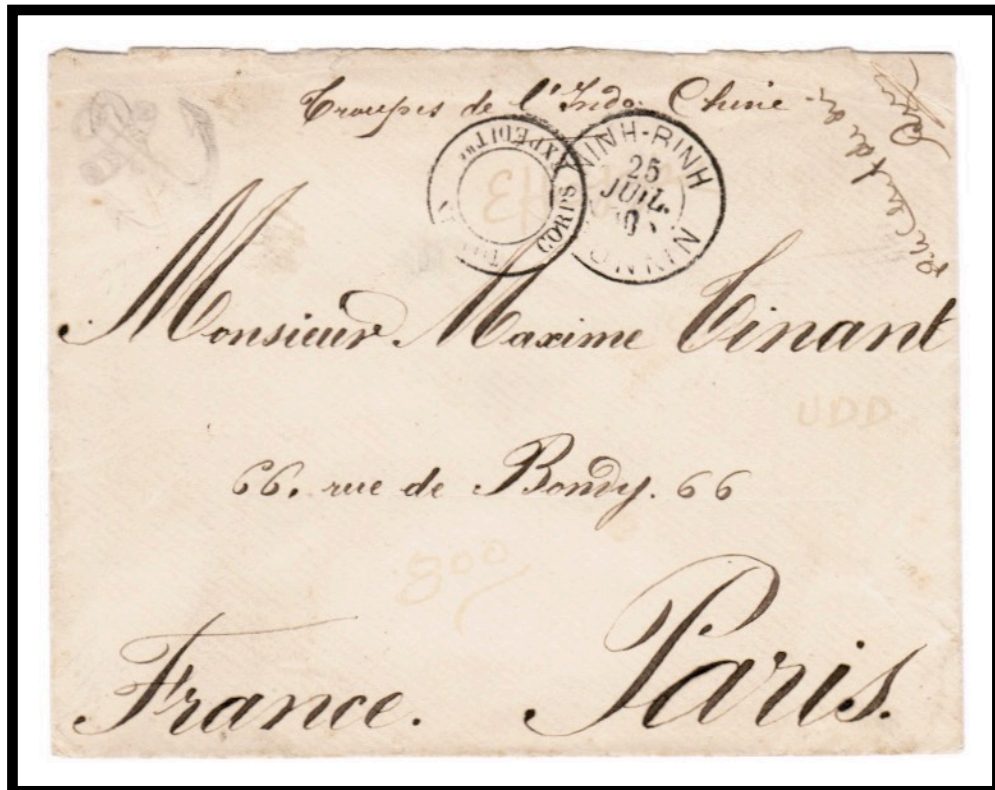 Troupes de l'Indo Chine
CORPS EXPEDIT^RE
NINH-BINH
25
JUIL.
TONKIN
Monsieur Maxime Tinant
UDD
66. rue de Bondy. 66
800
France. Paris.